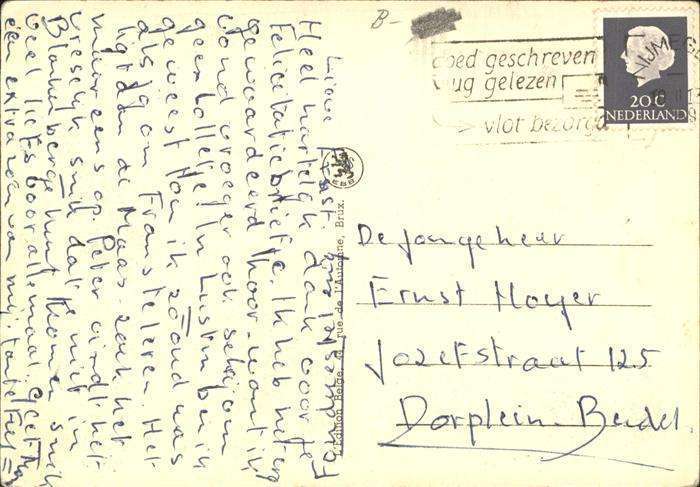 B-
goed geschreven
vlug gelezen
vlot bezorgd
NIJMEG
20 C
NEDERLAND
Lieve Ernst,
Heel hartelijk dank voor je
felicitatiebriefje. Ik heb het erg
gewaardeerd hoor, want ik
vond vroeger ook
geen lolletje! In Lustin ben ik
geweest toen ik zo oud was
als jij om Frans te leren. Het
ligt aan de Maas - zoek het
maar eens op. Peter vindt het
vreselijk dat je niet in
Blankenberge kunt komen
veel liefs voor allemaal
één extra zoen van mij, tante
Edition Belge, rue de l'Automne, Brux.
De Jongeheer
Ernst Hoyer
Jozefstraat 125
Dorplein-Budel